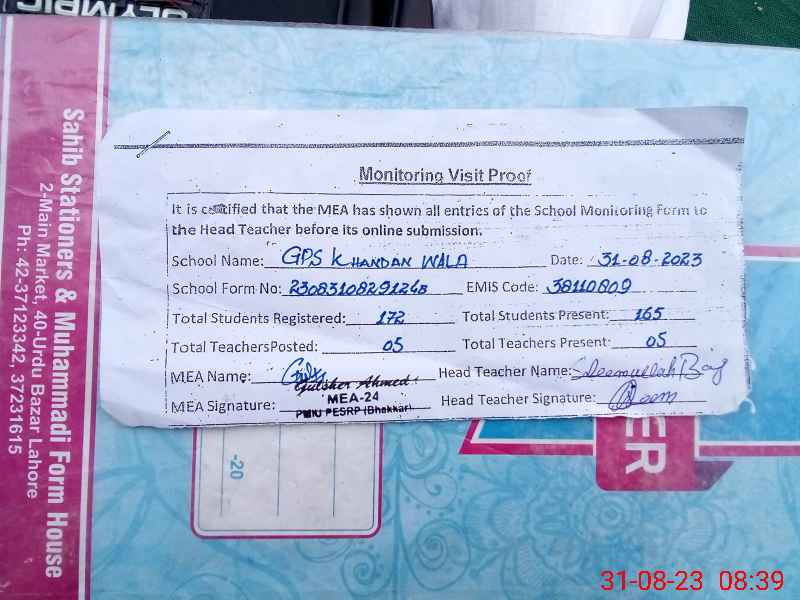 OLYMPIC
Sahib Stationers & Muhammadi Form House
2-Main Market, 40-Urdu Bazar Lahore
Ph: 42-37123342, 37231615
Monitoring Visit Proof
It is certified that the MEA has shown all entries of the School Monitoring Form to
the Head Teacher before its online submission.
School Name: GPS KHANDAN WALA Date: 31-08-2023
School Form No: EMIS Code: 38110809
Total Students Registered: 172 Total Students Present: 165
Total TeachersPosted: 05 Total Teachers Present: 05
MEA Name: Gulsher Ahmed Head Teacher Name:
MEA Signature: MEA-24 Head Teacher Signature:
PMIU PESRP (Bhakkar)
-20
ER
31-08-23 08:39